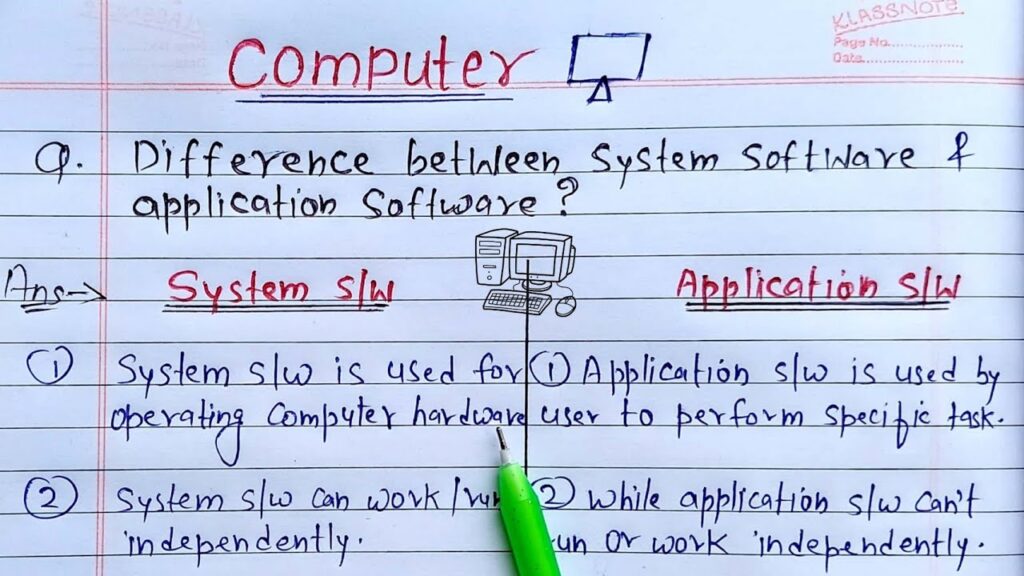 KLASSNOTE
Page No.
Date
Computer
Q. Difference between System Software &
application Software?
Ans→ System s/w Application s/w
① System s/w is used for
operating Computer hardware
① Application s/w is used by
user to perform specific task.
② System s/w can work/run
independently.
② while application s/w can't
run or work independently.